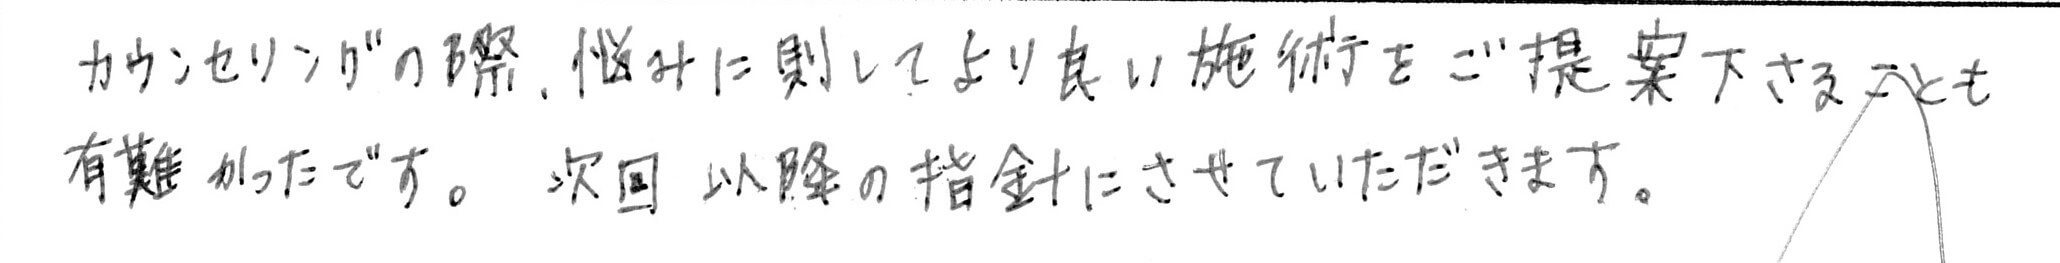 カウンセリングの際、悩みに則してより良い施術をご提案下さることも
有難かったです。 次回以降の指針にさせていただきます。